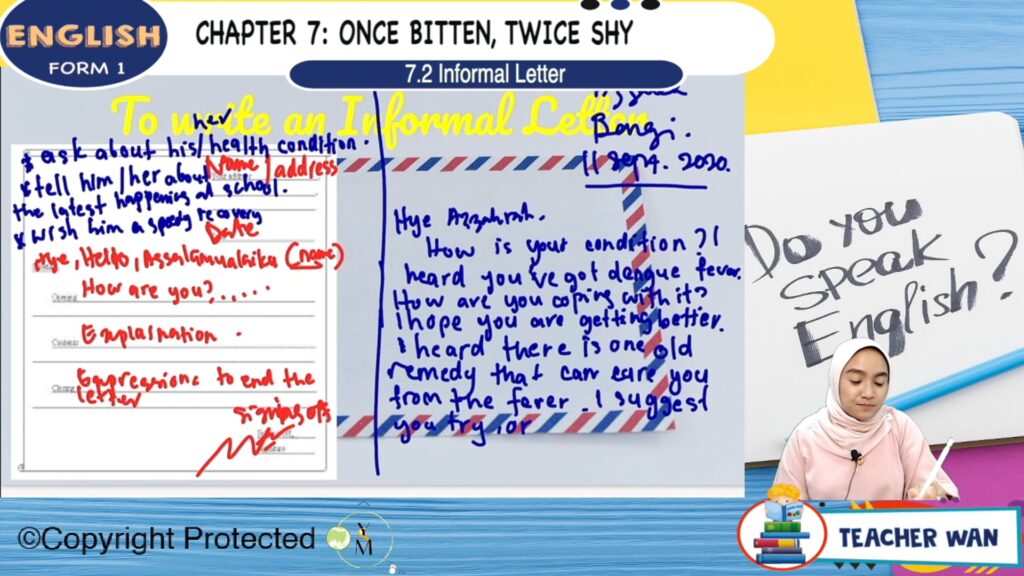 ENGLISH
FORM 1
CHAPTER 7: ONCE BITTEN, TWICE SHY
7.2 Informal Letter
To write an Informal Letter
her
* ask about his/health condition.
* tell him/her about
the latest happening at school.
* wish him a speedy recovery
Name/address
Date
Hye, Hello, Assalamualaiku (name)
How are you?......
Explaination.
Expressions to end the
letter
signing off
Bangi.
11 Sept. 2020.
Hye Azzahrah.
How is your condition? I
heard you've got dengue fever.
How are you coping with it?
I hope you are getting better.
I heard there is one old
remedy that can cure you
from the fever. I suggest
you try for
Do you
speak
English?
©Copyright Protected
YM
TEACHER WAN